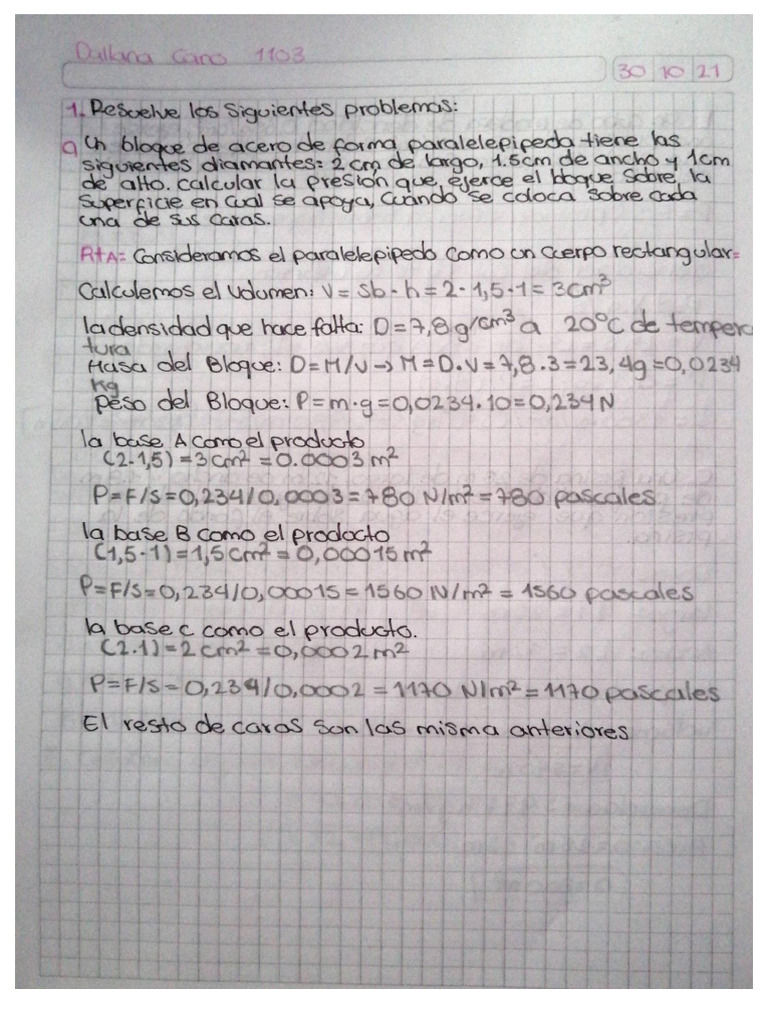 Dallana Cano 1103
30 10 21
1. Resuelve los siguientes problemas:
a Un bloque de acero de forma paralelepipeda tiene las
siguientes diamantes: 2 cm de largo, 1.5cm de ancho y 1cm
de alto. calcular la presión que, ejerce el bloque sobre la
superficie en cual se apoya, cuando se coloca sobre cada
una de sus caras.
RtA= Consideramos el paralelepipedo como un cuerpo rectangular=
Calculemos el volumen: V = Sb · h = 2 · 1,5 · 1 = 3 cm³
la densidad que hace falta: D = 7,8 g/cm³ a 20°C de temper
tura
Masa del Bloque: D = M/V → M = D.V = 7,8 . 3 = 23,4g = 0,0234
kg
peso del Bloque: P = m · g = 0,0234 . 10 = 0,234 N
la base A como el producto
(2 . 1,5) = 3 cm² = 0.0003 m²
P = F/S = 0,234/0,0003 = 780 N/m² = 780 pascales
la base B como el prodocto
(1,5 · 1) = 1,5 cm² = 0,00015 m²
P = F/S = 0,234/0,00015 = 1560 N/m² = 1560 pascales
la base c como el producto.
(2.1) = 2 cm² = 0,0002 m²
P = F/S = 0,234/0,0002 = 1170 N/m² = 1170 pascales
El resto de caras son las misma anteriores